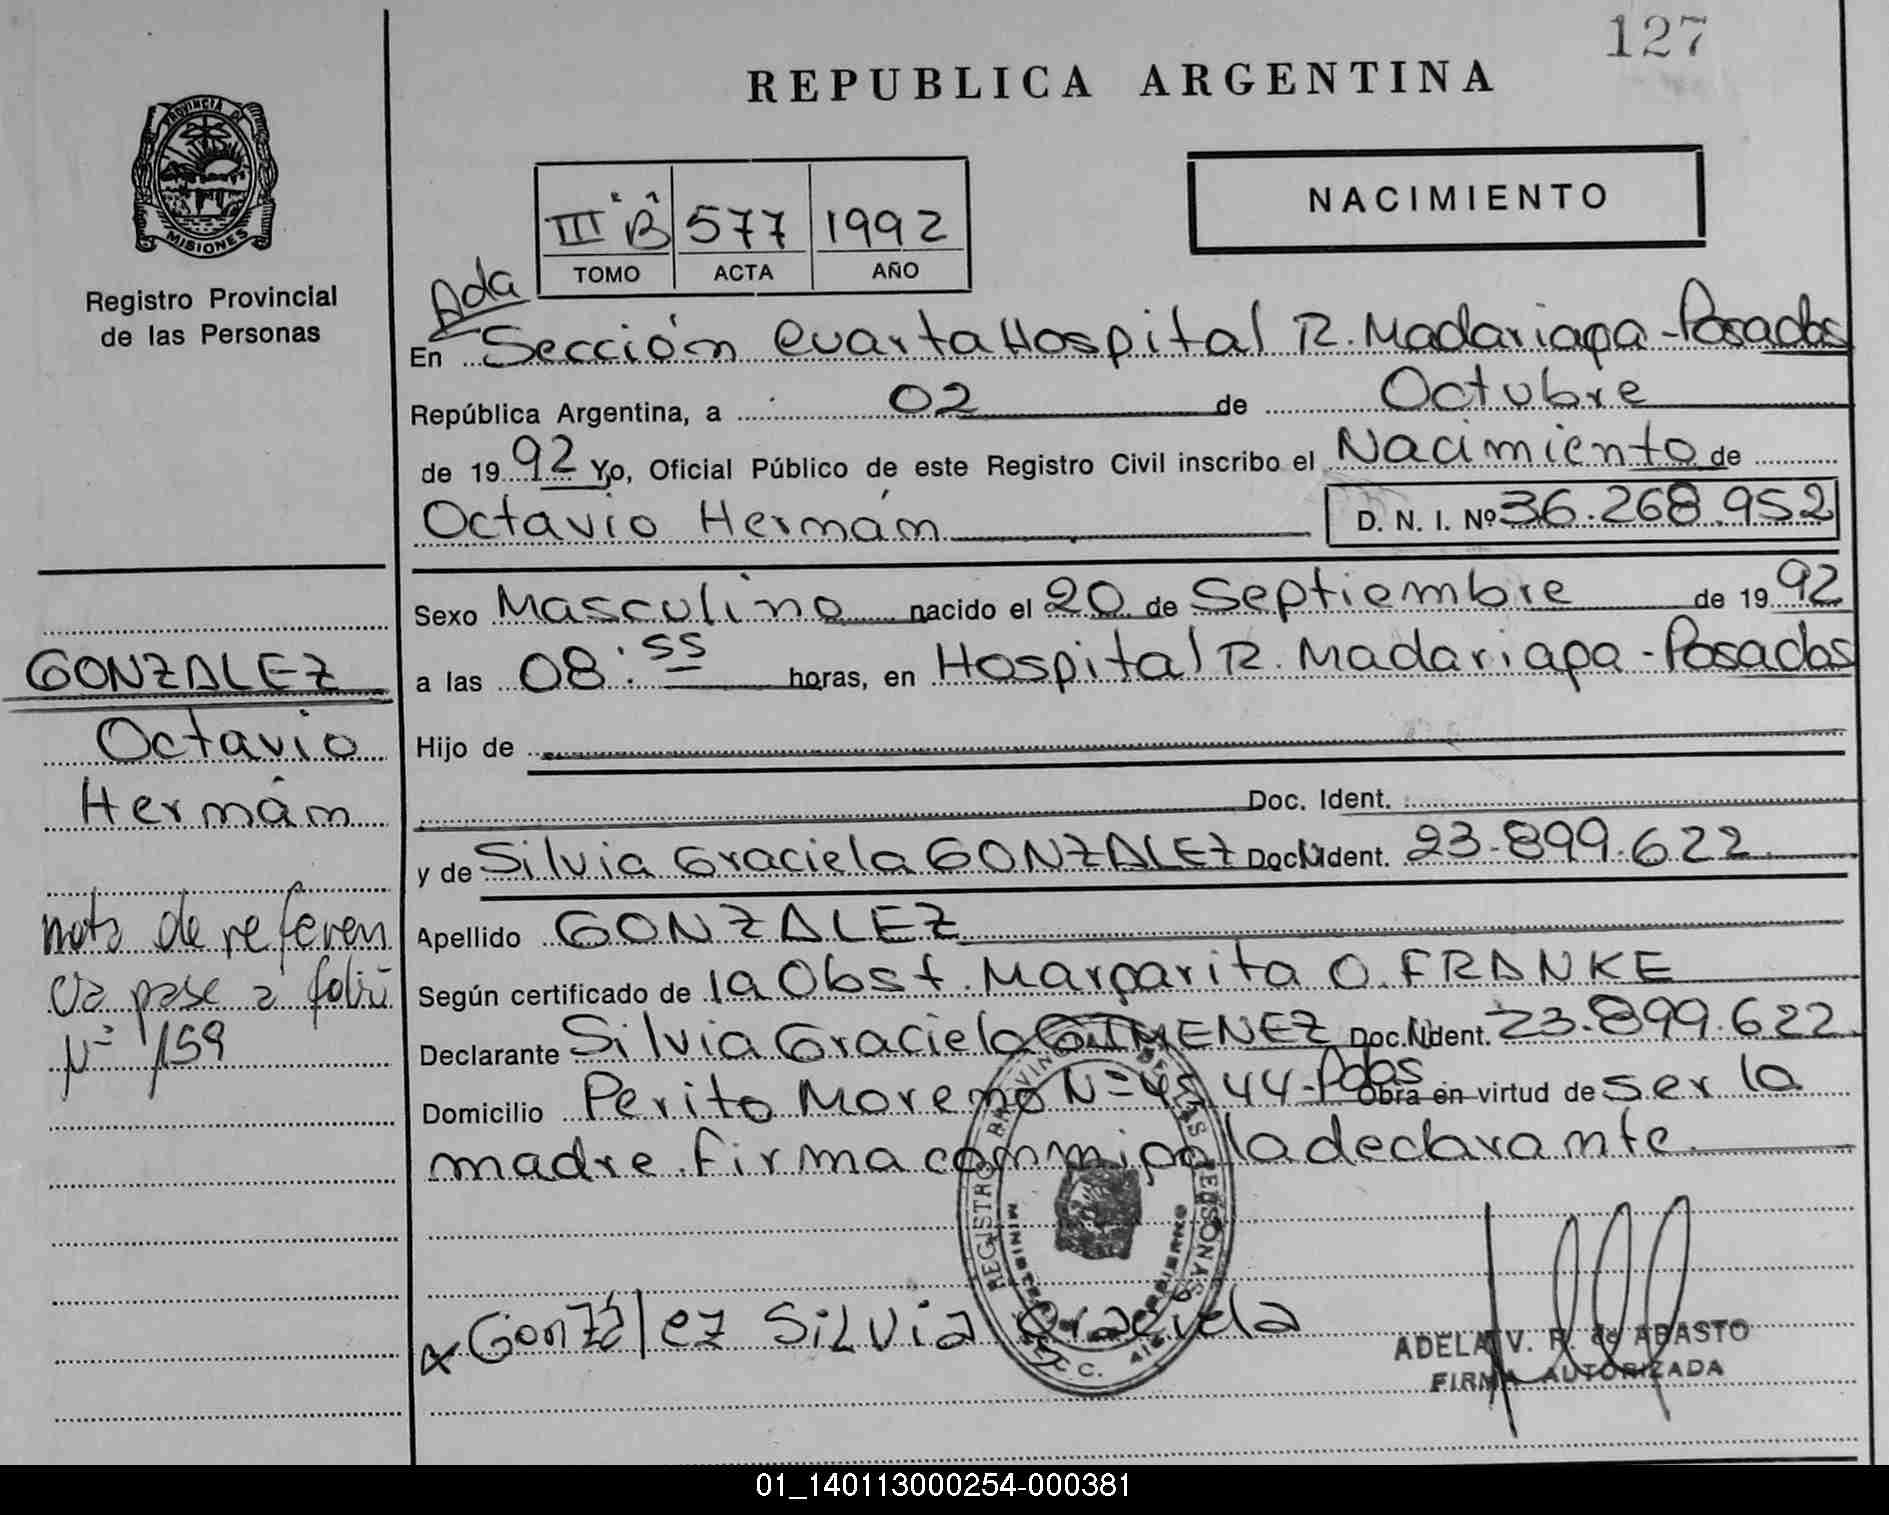 127
REPUBLICA ARGENTINA
PROVINCIA DE
MISIONES
Registro Provincial
de las Personas
III "B" 577 1992
TOMO ACTA AÑO
NACIMIENTO
Ada
En Sección Cuarta Hospital R. Madariaga - Posadas
República Argentina, a 02 de Octubre
de 1992 Yo, Oficial Público de este Registro Civil inscribo el Nacimiento de
Octavio Hernán D. N. I. Nº 36.268.952
Sexo Masculino nacido el 20 de Septiembre de 1992
a las 08:55 horas, en Hospital R. Madariaga - Posadas
Hijo de
Doc. Ident.
y de Silvia Graciela GONZALEZ Doc. Ident. 23.899.622
Apellido GONZALEZ
Según certificado de la Obst. Margarita O. FRANKE
Declarante Silvia Graciela GIMENEZ Doc. Ident. 23.899.622
Domicilio Perito Moreno Nº 4544 - Pdas Obra en virtud de ser la
madre. firma conmigo la declarante.
GONZALEZ
Octavio
Hernán
nota de referen
cia pase a folio
Nº 159
González SiLVia Graciela
REGISTRO PROVINCIAL DE LAS PERSONAS
ADELA V. R. de ABASTO
FIRMA AUTORIZADA
01_140113000254-000381